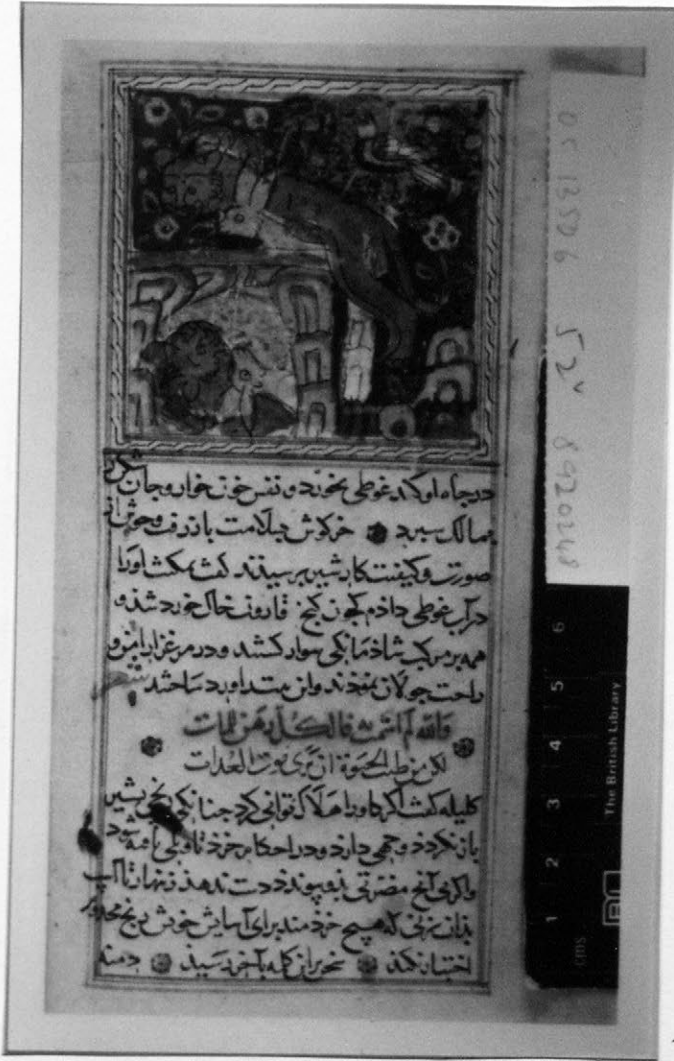 در چاه اوکند غوطی بخورد و نفس خون خوار و جان
بمالک سپرد خرکوش بسلامت باز رفت وحوش از
صورت و کیفیت کار شیر پرسیدند کفت بمکث اورا
در آب غوطی دادم کجون کنج قارون خاک خورد شد و
همه بر مرکب شاذمانکی سوار کشتند و در مرغزار امن و
راحت جولان نمودند و این بیت را ورد ساختند شعر
والله لم اشمت به فالکل رهن للممات
لکن من طیب الحیوة ان تری موت العدات
کلیله کفت اکر کاو را هلاک توانی کرد جنانکی رنج بشیر
باز نکردد وجهی دارد و در احکام خرد تاویلی یافته شود
واکر بی آنج مضرتی بذو پیوندد دست ندهد زنهار تا آسیب
بذان نزنی که هیچ خردمند برای آسایش خویش رنج مخدوم
اختیار نکند سخن بر این کلمه بآخر رسید دمنه
OC 13506 52v 8920248
1 2 3 4 5 6
cms
The British Library
BL